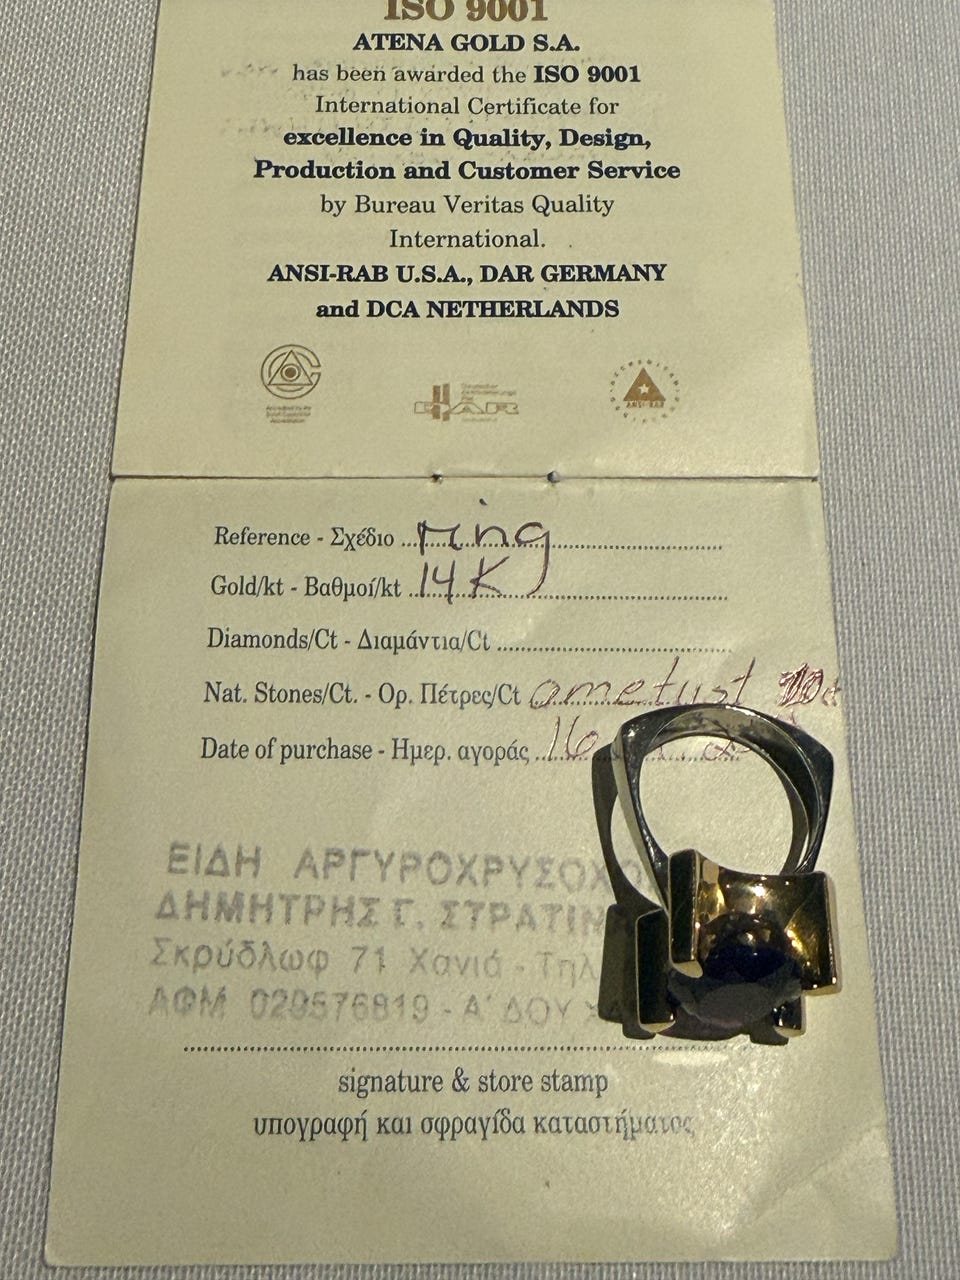 ISO 9001
ATENA GOLD S.A.
has been awarded the ISO 9001
International Certificate for
excellence in Quality, Design,
Production and Customer Service
by Bureau Veritas Quality
International.
ANSI-RAB U.S.A., DAR GERMANY
and DCA NETHERLANDS
DAR
Reference - Σχέδιο ring
Gold/kt - Βαθμοί/kt 14K
Diamonds/Ct - Διαμάντια/Ct
Nat. Stones/Ct. - Ορ. Πέτρες/Ct ametust
Date of purchase - Ημερ. αγοράς 16
ΕΙΔΗ
ΔΗΜΗΤΡΗΣ Γ.
Σκρύδλωφ 71 Χανιά - Τηλ
ΑΦΜ 029576819 - Α' ΔΟΥ
signature & store stamp
υπογραφή και σφραγίδα καταστήματος